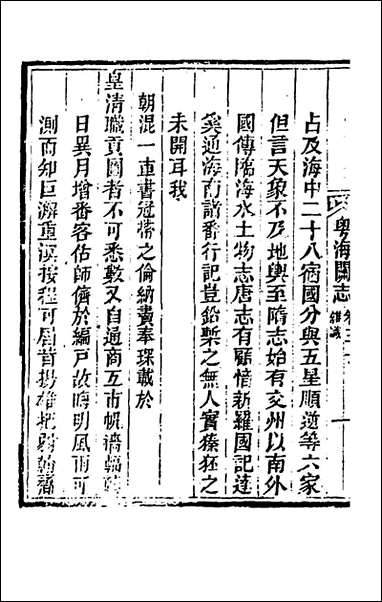 粤海關志 卷三十 雜識 一
占及海中二十八宿國分與五星順逆等六家
但言天象不及地輿至隋志始有交州以南外
國傳臨海水土物志唐志有顧愔新羅國記達
奚通海南諸番行記豈鉛槧之無人實獉狉之
未開耳我
朝混一車書冠帶之倫納賮奉琛載於
皇清職貢圖者不可悉數又自通商互市帆檣輻
日異月增番客估師儕於編戶故晦明風雨可
測而知巨澥重溟按程可屆昔揚雄把弱翰齎